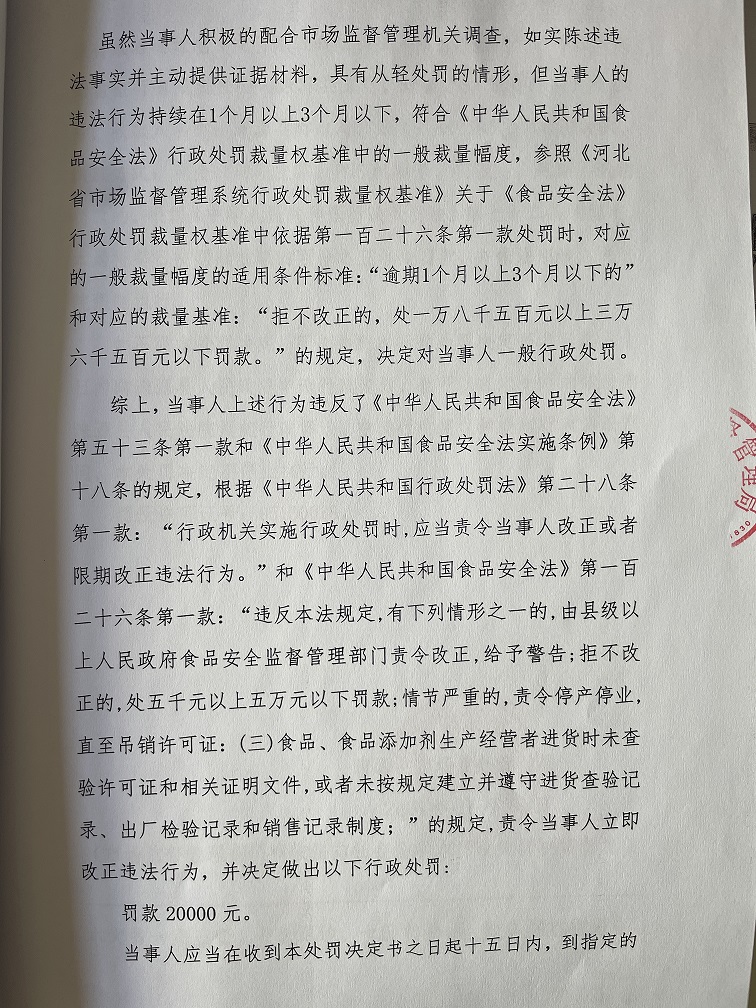 虽然当事人积极的配合市场监督管理机关调查，如实陈述违
法事实并主动提供证据材料，具有从轻处罚的情形，但当事人的
违法行为持续在1个月以上3个月以下，符合《中华人民共和国食
品安全法》行政处罚裁量权基准中的一般裁量幅度，参照《河北
省市场监督管理系统行政处罚裁量权基准》关于《食品安全法》
行政处罚裁量权基准中依据第一百二十六条第一款处罚时，对应
的一般裁量幅度的适用条件标准：“逾期1个月以上3个月以下的”
和对应的裁量基准：“拒不改正的，处一万八千五百元以上三万
六千五百元以下罚款。”的规定，决定对当事人一般行政处罚。
综上，当事人上述行为违反了《中华人民共和国食品安全法》
第五十三条第一款和《中华人民共和国食品安全法实施条例》第
十八条的规定，根据《中华人民共和国行政处罚法》第二十八条
第一款：“行政机关实施行政处罚时,应当责令当事人改正或者
限期改正违法行为。”和《中华人民共和国食品安全法》第一百
二十六条第一款：“违反本法规定,有下列情形之一的,由县级以
上人民政府食品安全监督管理部门责令改正,给予警告;拒不改
正的,处五千元以上五万元以下罚款;情节严重的,责令停产停业,
直至吊销许可证：(三)食品、食品添加剂生产经营者进货时未查
验许可证和相关证明文件,或者未按规定建立并遵守进货查验记
录、出厂检验记录和销售记录制度；”的规定,责令当事人立即
改正违法行为，并决定做出以下行政处罚：
罚款 20000 元。
当事人应当在收到本处罚决定书之日起十五日内，到指定的
管理局